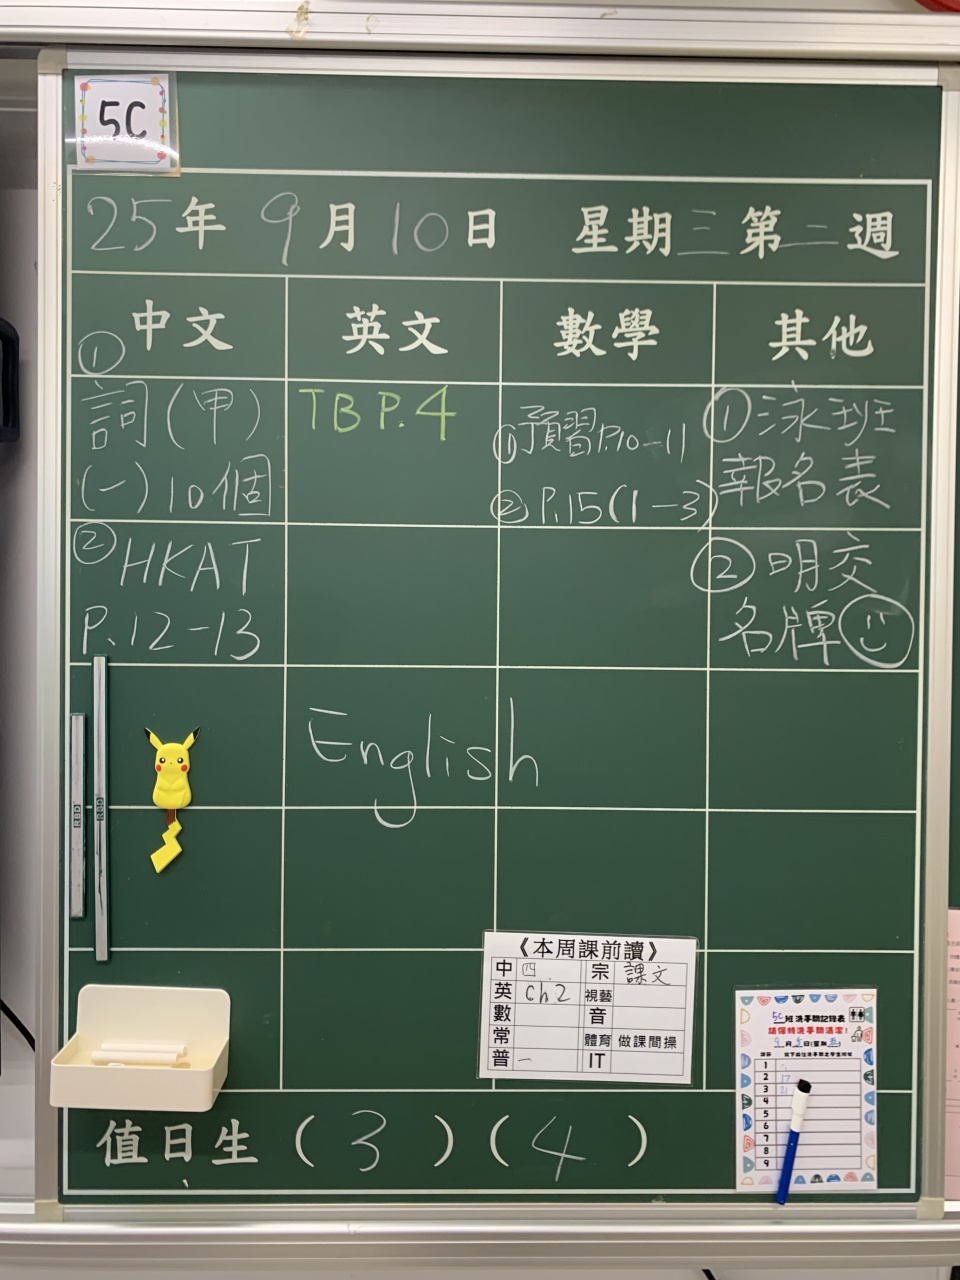 5C
25年 9月10日 星期三第二週
中文 英文 數學 其他
①
詞(甲)
(一)10個
②HKAT
P.12-13
TB P.4
①預習P.10-11
②P.15(1-3)
①泳班
報名表
②明交
名牌
English
《本周課前讀》
中 四 宗 課文
英 ch2 視藝
數 音
常 體育 做課間操
普 一 IT
5C班洗手間記錄表
請保持洗手間清潔!
1
2 17
3 21
4
5
6
7
8
9
值日生(3)(4)